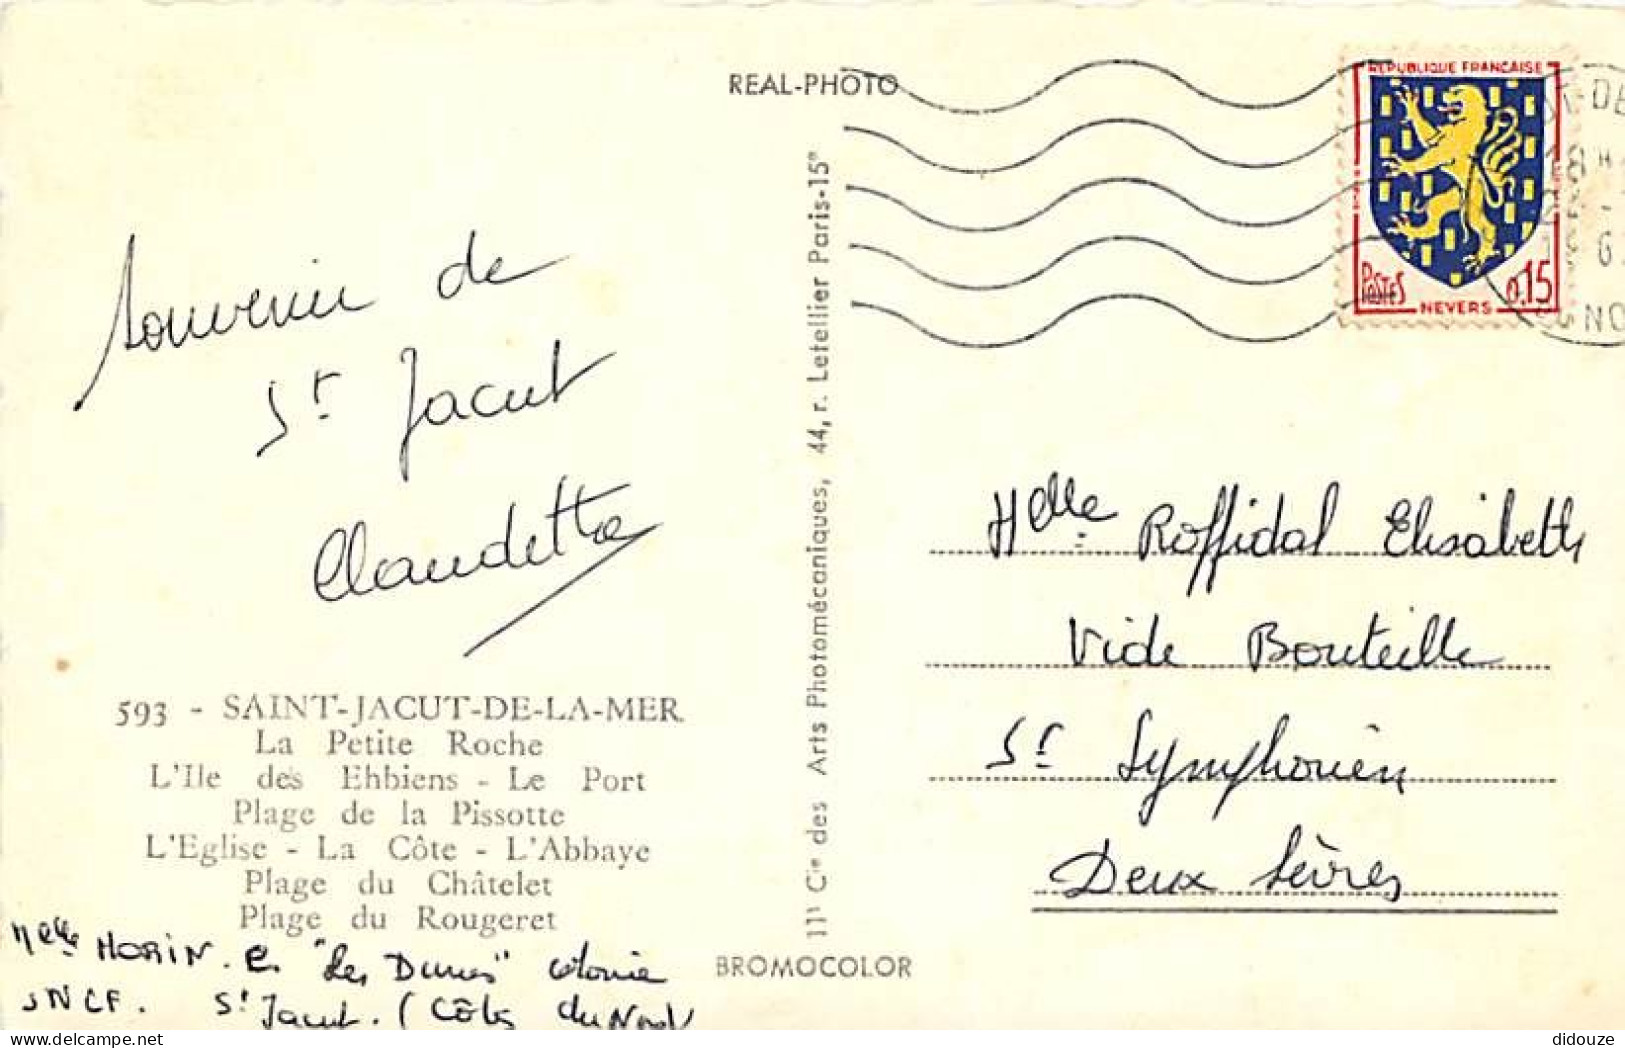 REAL-PHOTO
RÉPUBLIQUE FRANÇAISE
POSTES
0,15
NEVERS
Souvenir de
St Jacut
Claudette
Melle Roffidal Elisabeth
Vide Bouteille
St Symphorien
Deux Sèvres
593 - SAINT-JACUT-DE-LA-MER
La Petite Roche
L'Ile des Ehbiens - Le Port
Plage de la Pissotte
L'Eglise - La Côte - L'Abbaye
Plage du Châtelet
Plage du Rougeret
Melle MORIN. C. "Les Dunes" colonie
SNCF. St Jacut. (Côtes du Nord
Cie des Arts Photomécaniques, 44, r. Letellier Paris-15e
BROMOCOLOR
delcampe.net
didouze